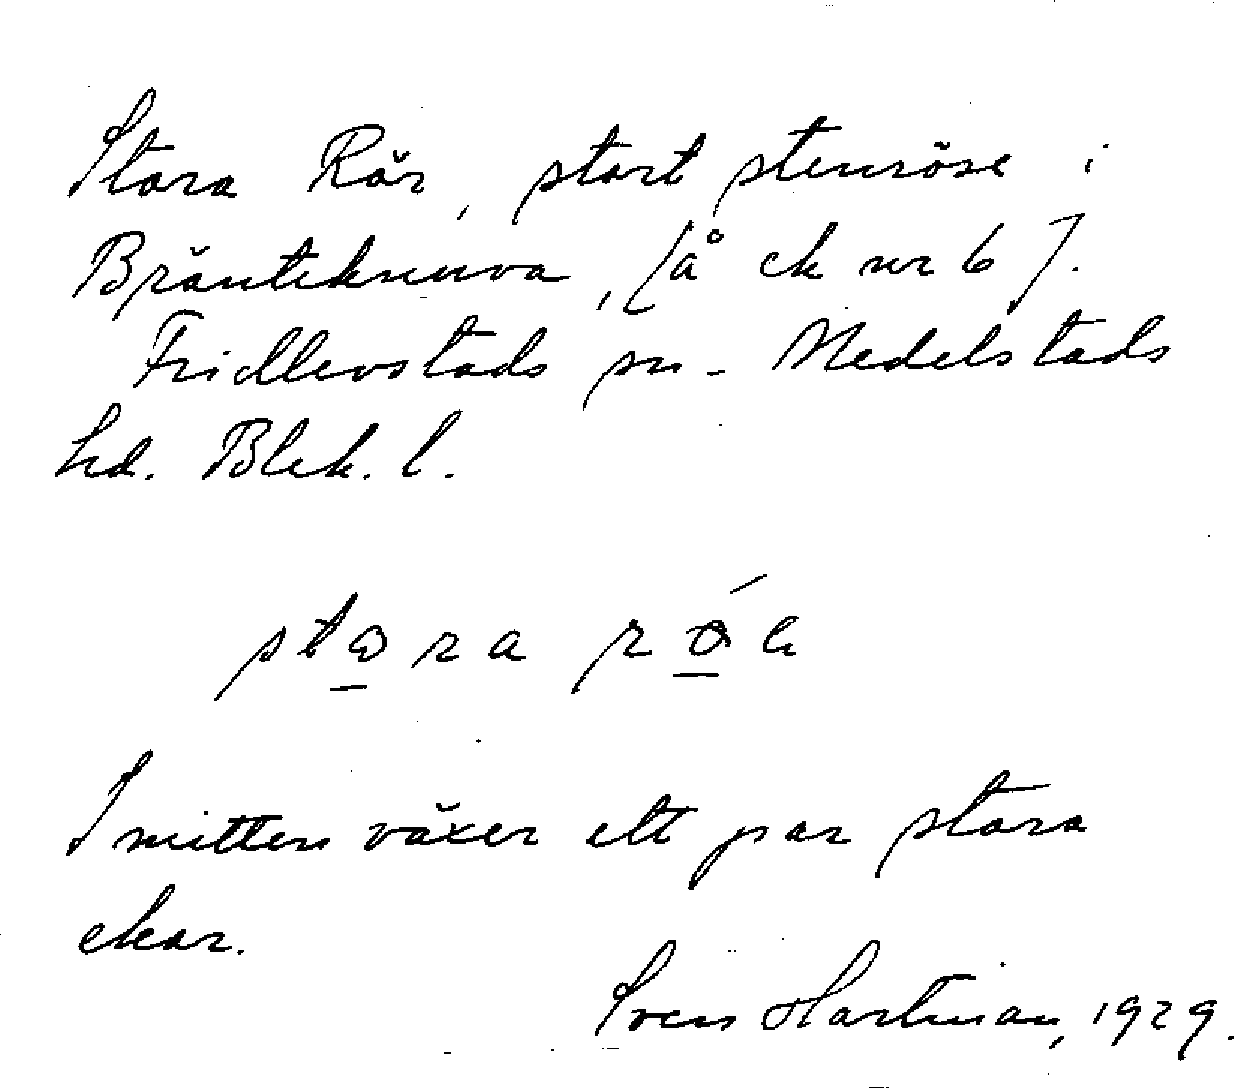 Stora Rör, stort stenröse i
Bränteknuva, [å ek nr 6].
Fridlevstads sn. Medelstads
hd. Blek. l.
I mitten växer ett par stora
ekar.
Sven Hartman, 1929.